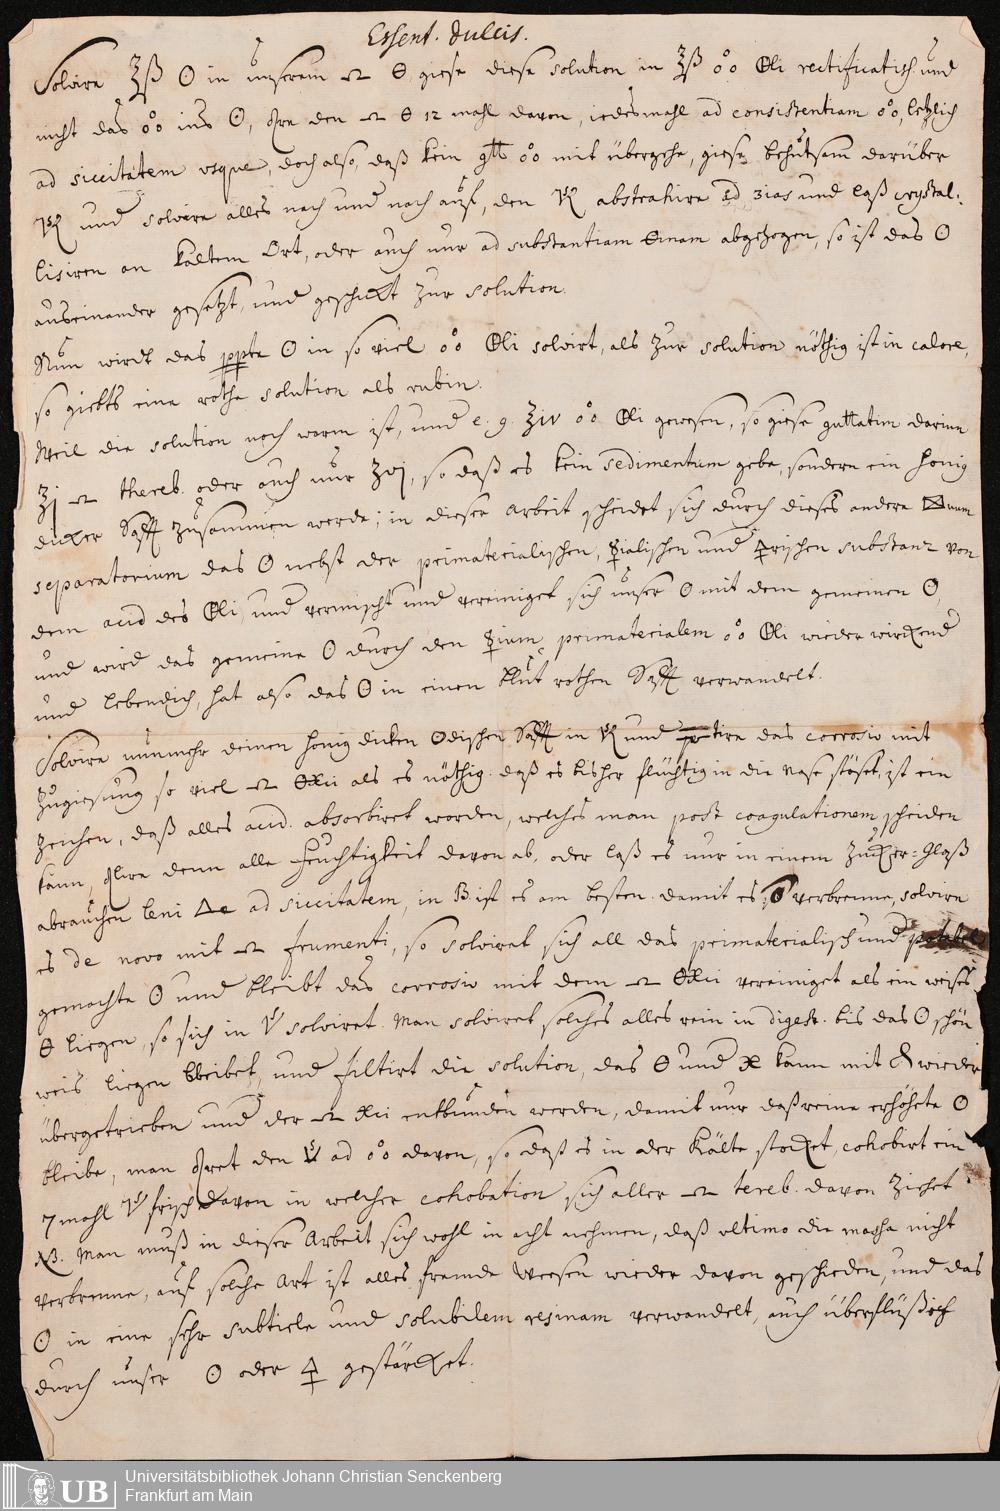 Essent. dulcis.
Solvire ℥ß ☉ in unserem 🜹 🜔 giese diese solution in ℥ß o°o Øli rectificatiss. und
nicht das o°o ins ☉, den 🜹 🜔 12 mahl davon, iedesmahl ad consistentiam o°o, letzlich
ad siccitatem usque, doch also, daß kein gtt o°o mit übergehe, giese behutsam darüber
und solvire alles nach und nach auf, den abstrahire ad 3ias und laß crystal=
lisiren an kaltem Ort, oder auch nur ad substantiam abgezogen, so ist das ☉
auseinander gesetzt, und geschickt zur solution.
Nun wird das ppte ☉ in so viel o°o Øli solvirt, als zur solution nöthig ist in calore,
so giebts eine rothe solution als rubin.
Weil die solution noch warm ist, und e. g. ℥iv o°o Øli gewesen, so giese guttatim darinn
℥j 🜹 thereb. oder auch nur ʒvj, so daß es kein sedimentum gebe, sondern ein honig
dicker Safft zusammen werde; in dieser Arbeit scheidet sich durch dieses andere
separatorium das ☉ nebst der primaterialischen, ☿rialischen und 🜍rischen substanz von
dem acid des Øli, und vermischt und vereiniget sich unser ☉ mit dem gemeinen ☉,
und wird das gemeine ☉ durch den ☿ium primaterialem o°o Øli wieder wirckend
und lebendich, hat also das ☉ in einen blut rothen Safft verwandelt.
Solvire nunmehr deinen honig dicken ☉dischen Safft in und das corrosiv mit
zugiesung so viel 🜹 als es nöthig. daß es bisher flüchtig in die Nase stöset, ist ein
zeichen, daß alles acid. absorbiret worden, welches man post coagulationem scheiden
kann, denn alle feuchtigkeit davon ab, oder laß es nur in einem Zucker=Glaß
abrauchen leni △e ad siccitatem, in B. ist es am besten. damit es verbrenne, solvire
es de novo mit 🜹 frumenti, so solviret sich all das primaterialisch und
gemachte ☉ und bleibt das corrosiv mit dem 🜹 vereiniget als ein weises
🜔 liegen, so sich in solviret. Man solviret solches alles rein in digest. bis das ☉ schön
weis liegen bleibet, und filtirt die solution, das 🜔 und kann mit wieder
übergetrieben und der 🜹 entbunden werden, damit nur das reine erhöhete ☉
bleibe, man den ad o°o davon, so daß es in der Kälte stocket, cohobirt ein
7 mahl frisch davon in welcher cohobation sich aller 🜹 tereb. davon ziehet
NB. Man muß in dieser Arbeit sich wohl in acht nehmen, daß ultimo die massa nicht
verbrenne, auf solche Art ist alles fremde Weesen wieder davon geschieden, und das
☉ in eine sehr subtiele und solubilem resinam verwandelt, auch überflüßig
durch unser ☉ oder 🜍 gestärcket.
Universitätsbibliothek Johann Christian Senckenberg
Frankfurt am Main
UB